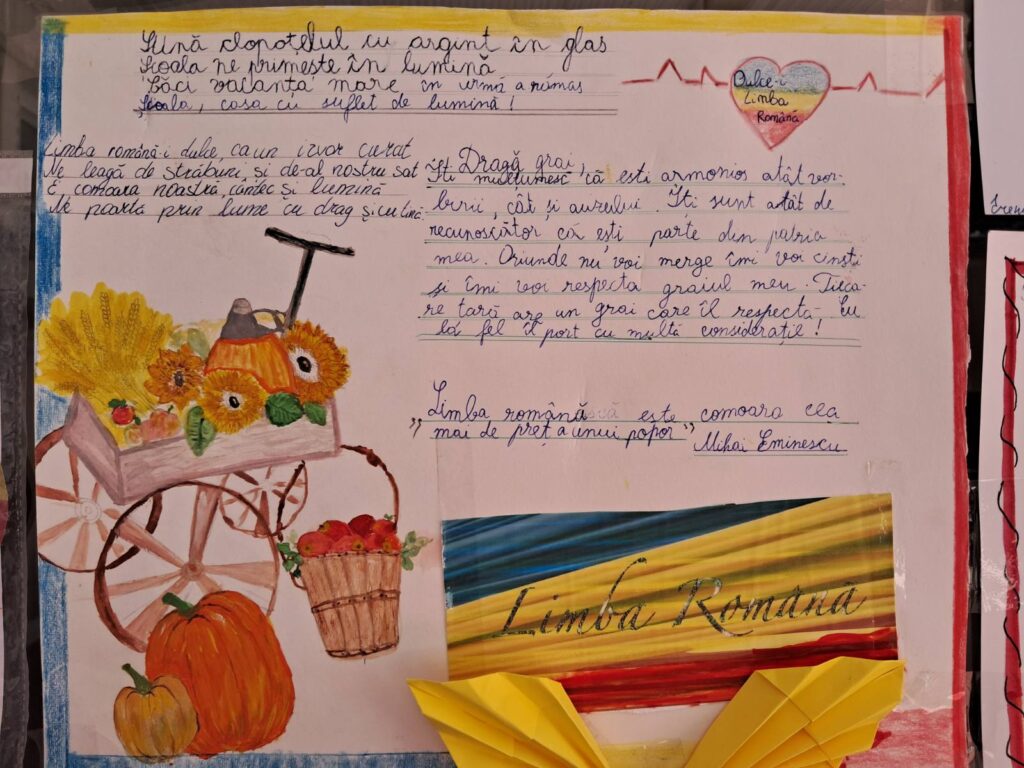 Sună clopoțelul cu argint în glas
Școala ne primește în lumină
Căci vacanța mare în urmă a rămas
Școala, casa cu suflet de lumină!
Dulce-i
Limba
Română
Limba română-i dulce, ca un izvor curat
Ne leagă de străbuni, și de-al nostru sat
E comoara noastră, cântec și lumină
Ne poartă prin lume cu drag și cu tină.
Dragă grai,
Îți mulțumesc că ești armonios atât vor-
birii, cât și auzului. Îți sunt atât de
recunoscător că ești parte din patria
mea. Oriunde nu voi merge îmi voi cinsti
și îmi voi respecta graiul meu. Fieca-
re țară are un grai care îl respectă. Eu
la fel îl port cu multă considerație!
„Limba românăscă este comoara cea
mai de preț a unui popor”
Mihai Eminescu
Limba Română